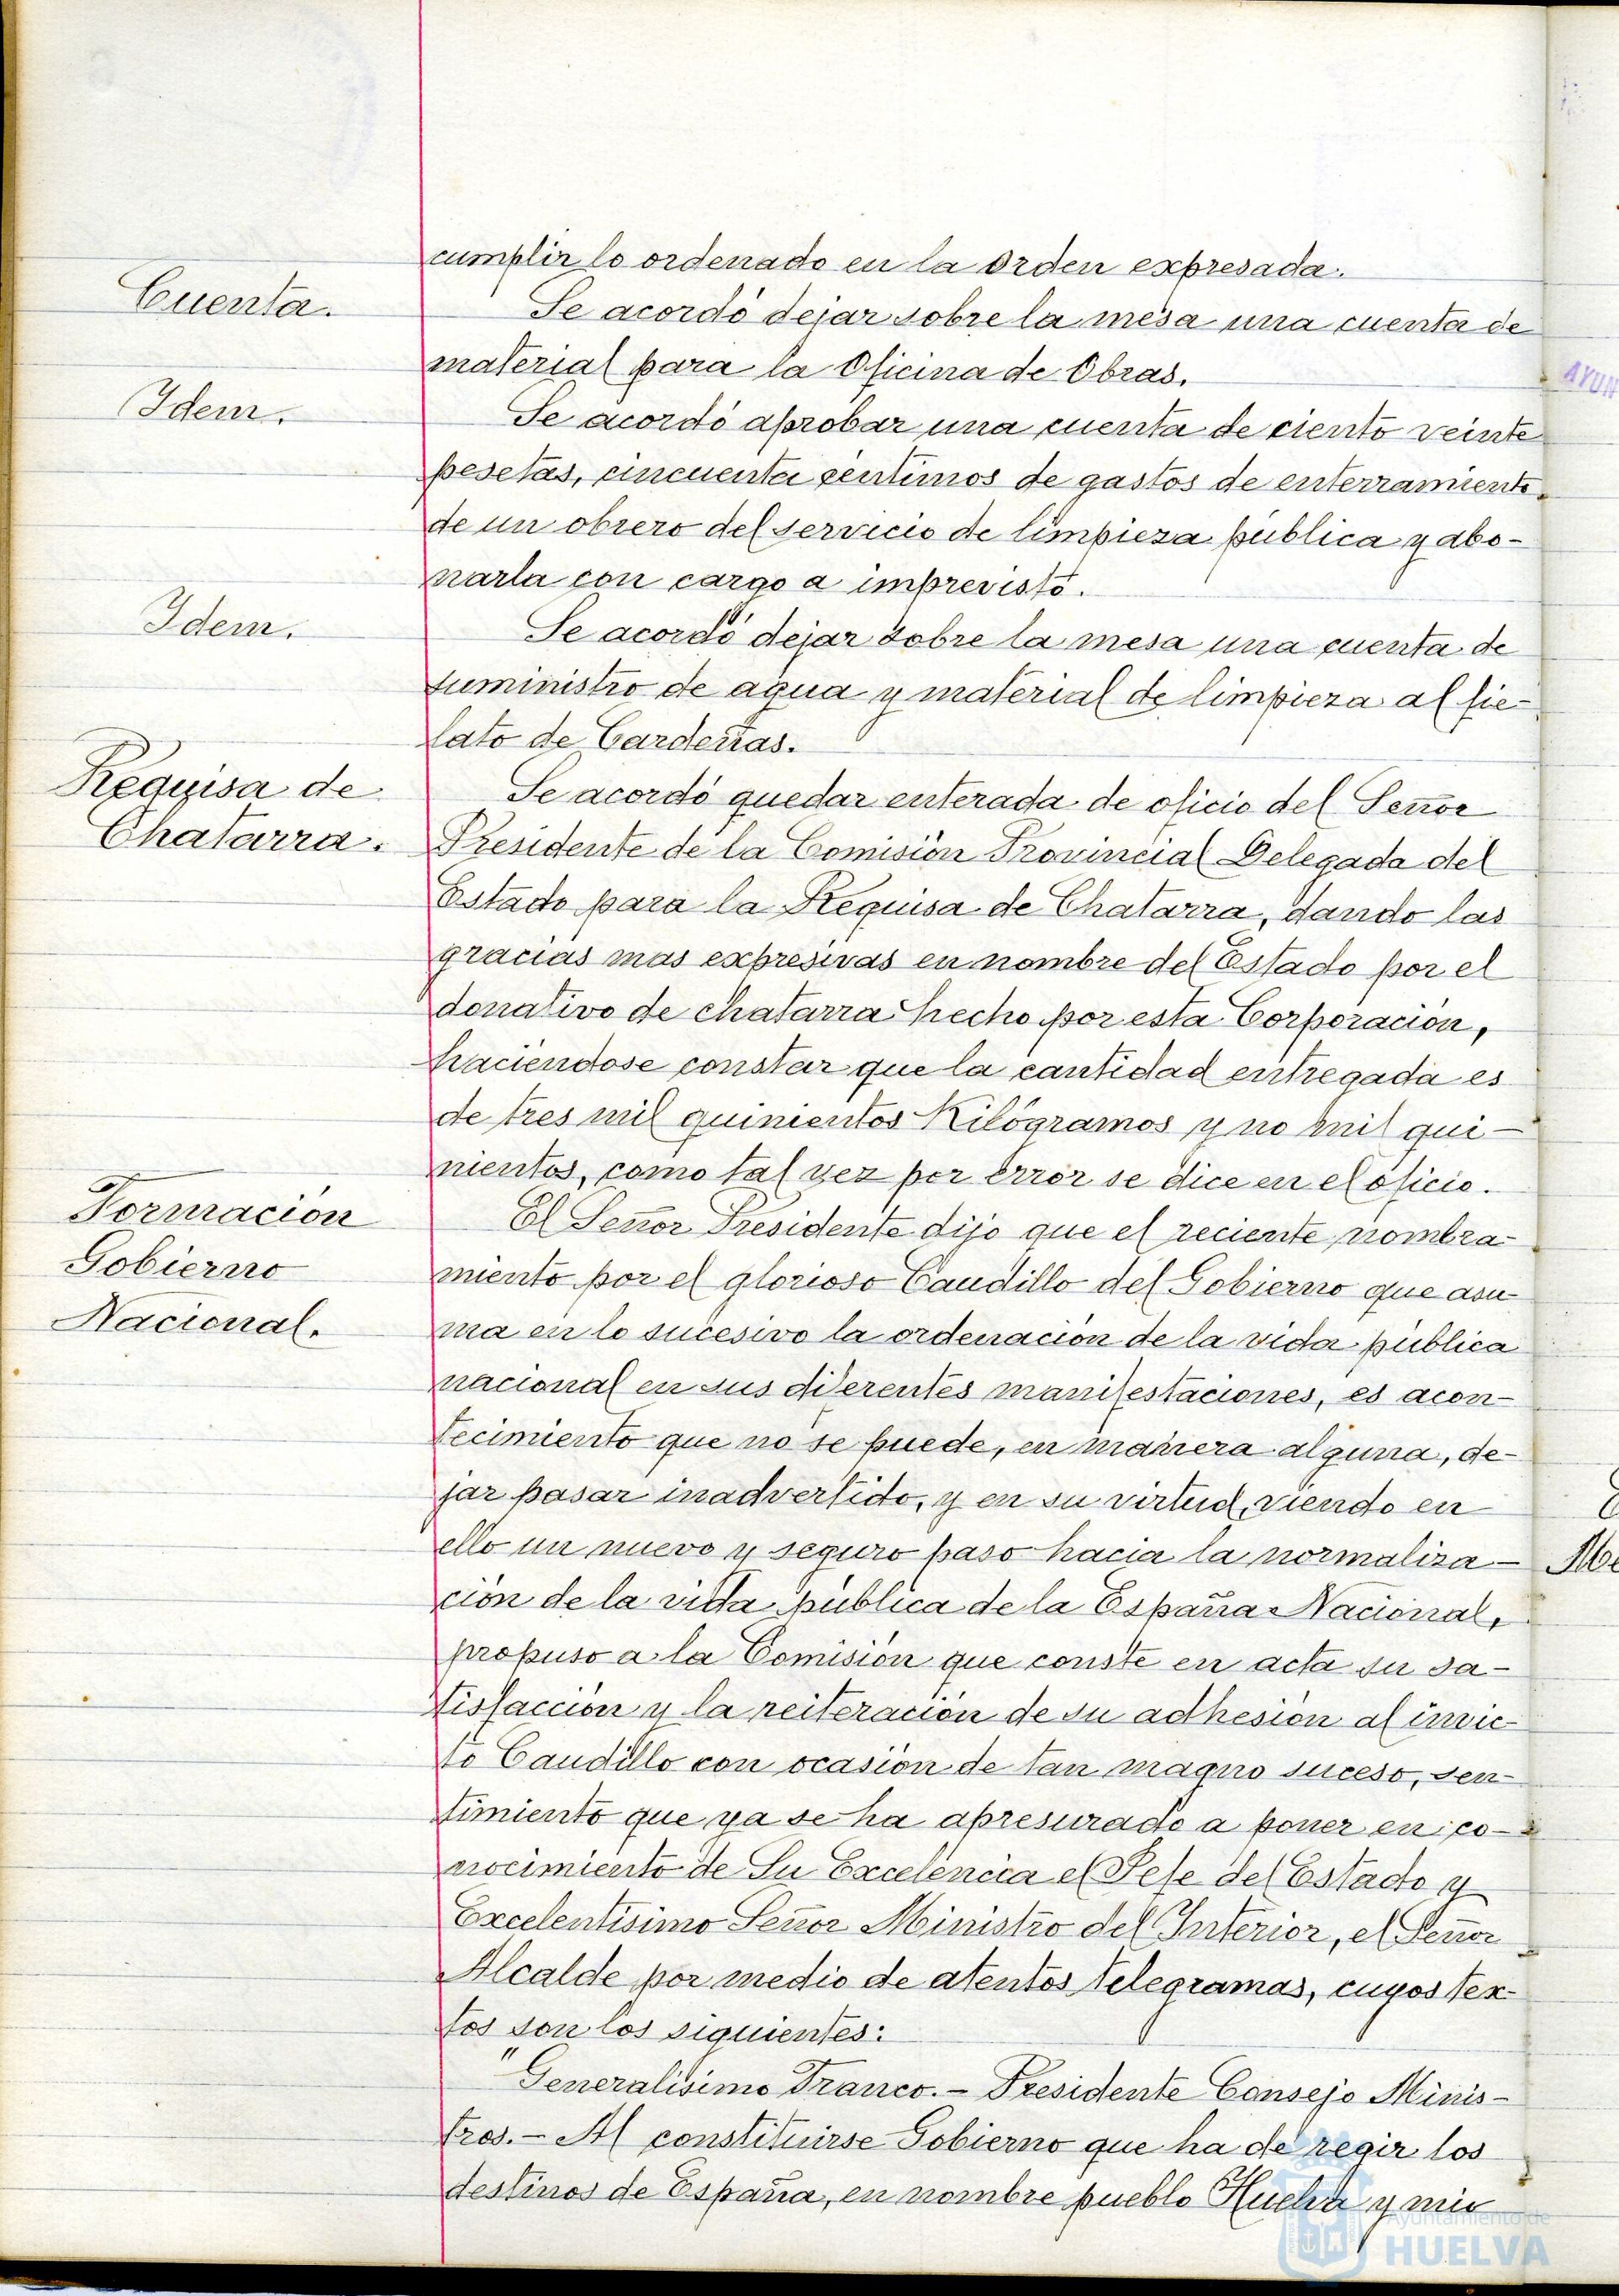 cumplir lo ordenado en la orden expresada.
Cuenta.
Se acordó dejar sobre la mesa una cuenta de
material para la Oficina de Obras.
Idem.
Se acordó aprobar una cuenta de ciento veinte
pesetas, cincuenta centimos de gastos de enterramiento
de un obrero del servicio de limpieza pública y abo-
narla con cargo a imprevisto.
Idem.
Se acordó dejar sobre la mesa una cuenta de
suministro de agua y material de limpieza al fie-
lato de Cardeñas.
Requisa de
Chatarra.
Se acordó quedar enterada de oficio del Señor
Presidente de la Comisión Provincial Delegada del
Estado para la Requisa de Chatarra, dando las
gracias mas expresivas en nombre del Estado por el
donativo de chatarra hecho por esta Corporación,
haciendose constar que la cantidad entregada es
de tres mil quinientos Kilógramos y no mil qui-
nientos, como tal vez por error se dice en el oficio.
Formación
Gobierno
Nacional.
El Señor Presidente dijo que el reciente nombra-
miento por el glorioso Caudillo del Gobierno que asu-
ma en lo sucesivo la ordenación de la vida pública
nacional en sus diferentes manifestaciones, es acon-
tecimiento que no se puede, en manera alguna, de-
jar pasar inadvertido, y en su virtud, viendo en
ello un nuevo y seguro paso hacia la normaliza-
ción de la vida pública de la España Nacional,
propuso a la Comisión que conste en acta su sa-
tisfacción y la reiteración de su adhesión al invic-
to Caudillo con ocasión de tan magno suceso, sen-
timiento que ya se ha apresurado a poner en co-
nocimiento de Su Excelencia el Jefe del Estado y
Excelentísimo Señor Ministro del Interior, el Señor
Alcalde por medio de atentos telegramas, cuyos tex-
tos son los siguientes:
"Generalísimo Franco.- Presidente Consejo Minis-
tros.- Al constituirse Gobierno que ha de regir los
destinos de España, en nombre pueblo Huelva y mio
AYUN
Ayuntamiento de
HUELVA